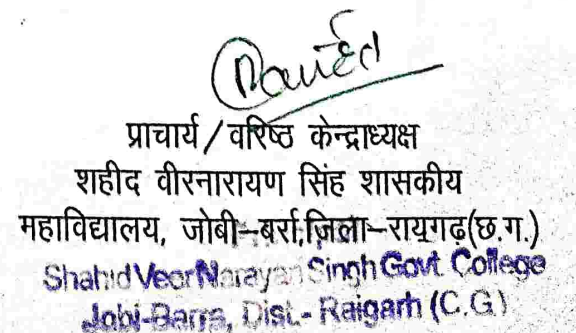 प्राचार्य/वरिष्ठ केन्द्राध्यक्ष
शहीद वीरनारायण सिंह शासकीय
महाविद्यालय, जोबी–बर्रा,जिला–रायगढ़(छ.ग.)
Shahid Veer Narayan Singh Govt. College
Jobi-Barra, Dist.- Raigarh (C.G.)